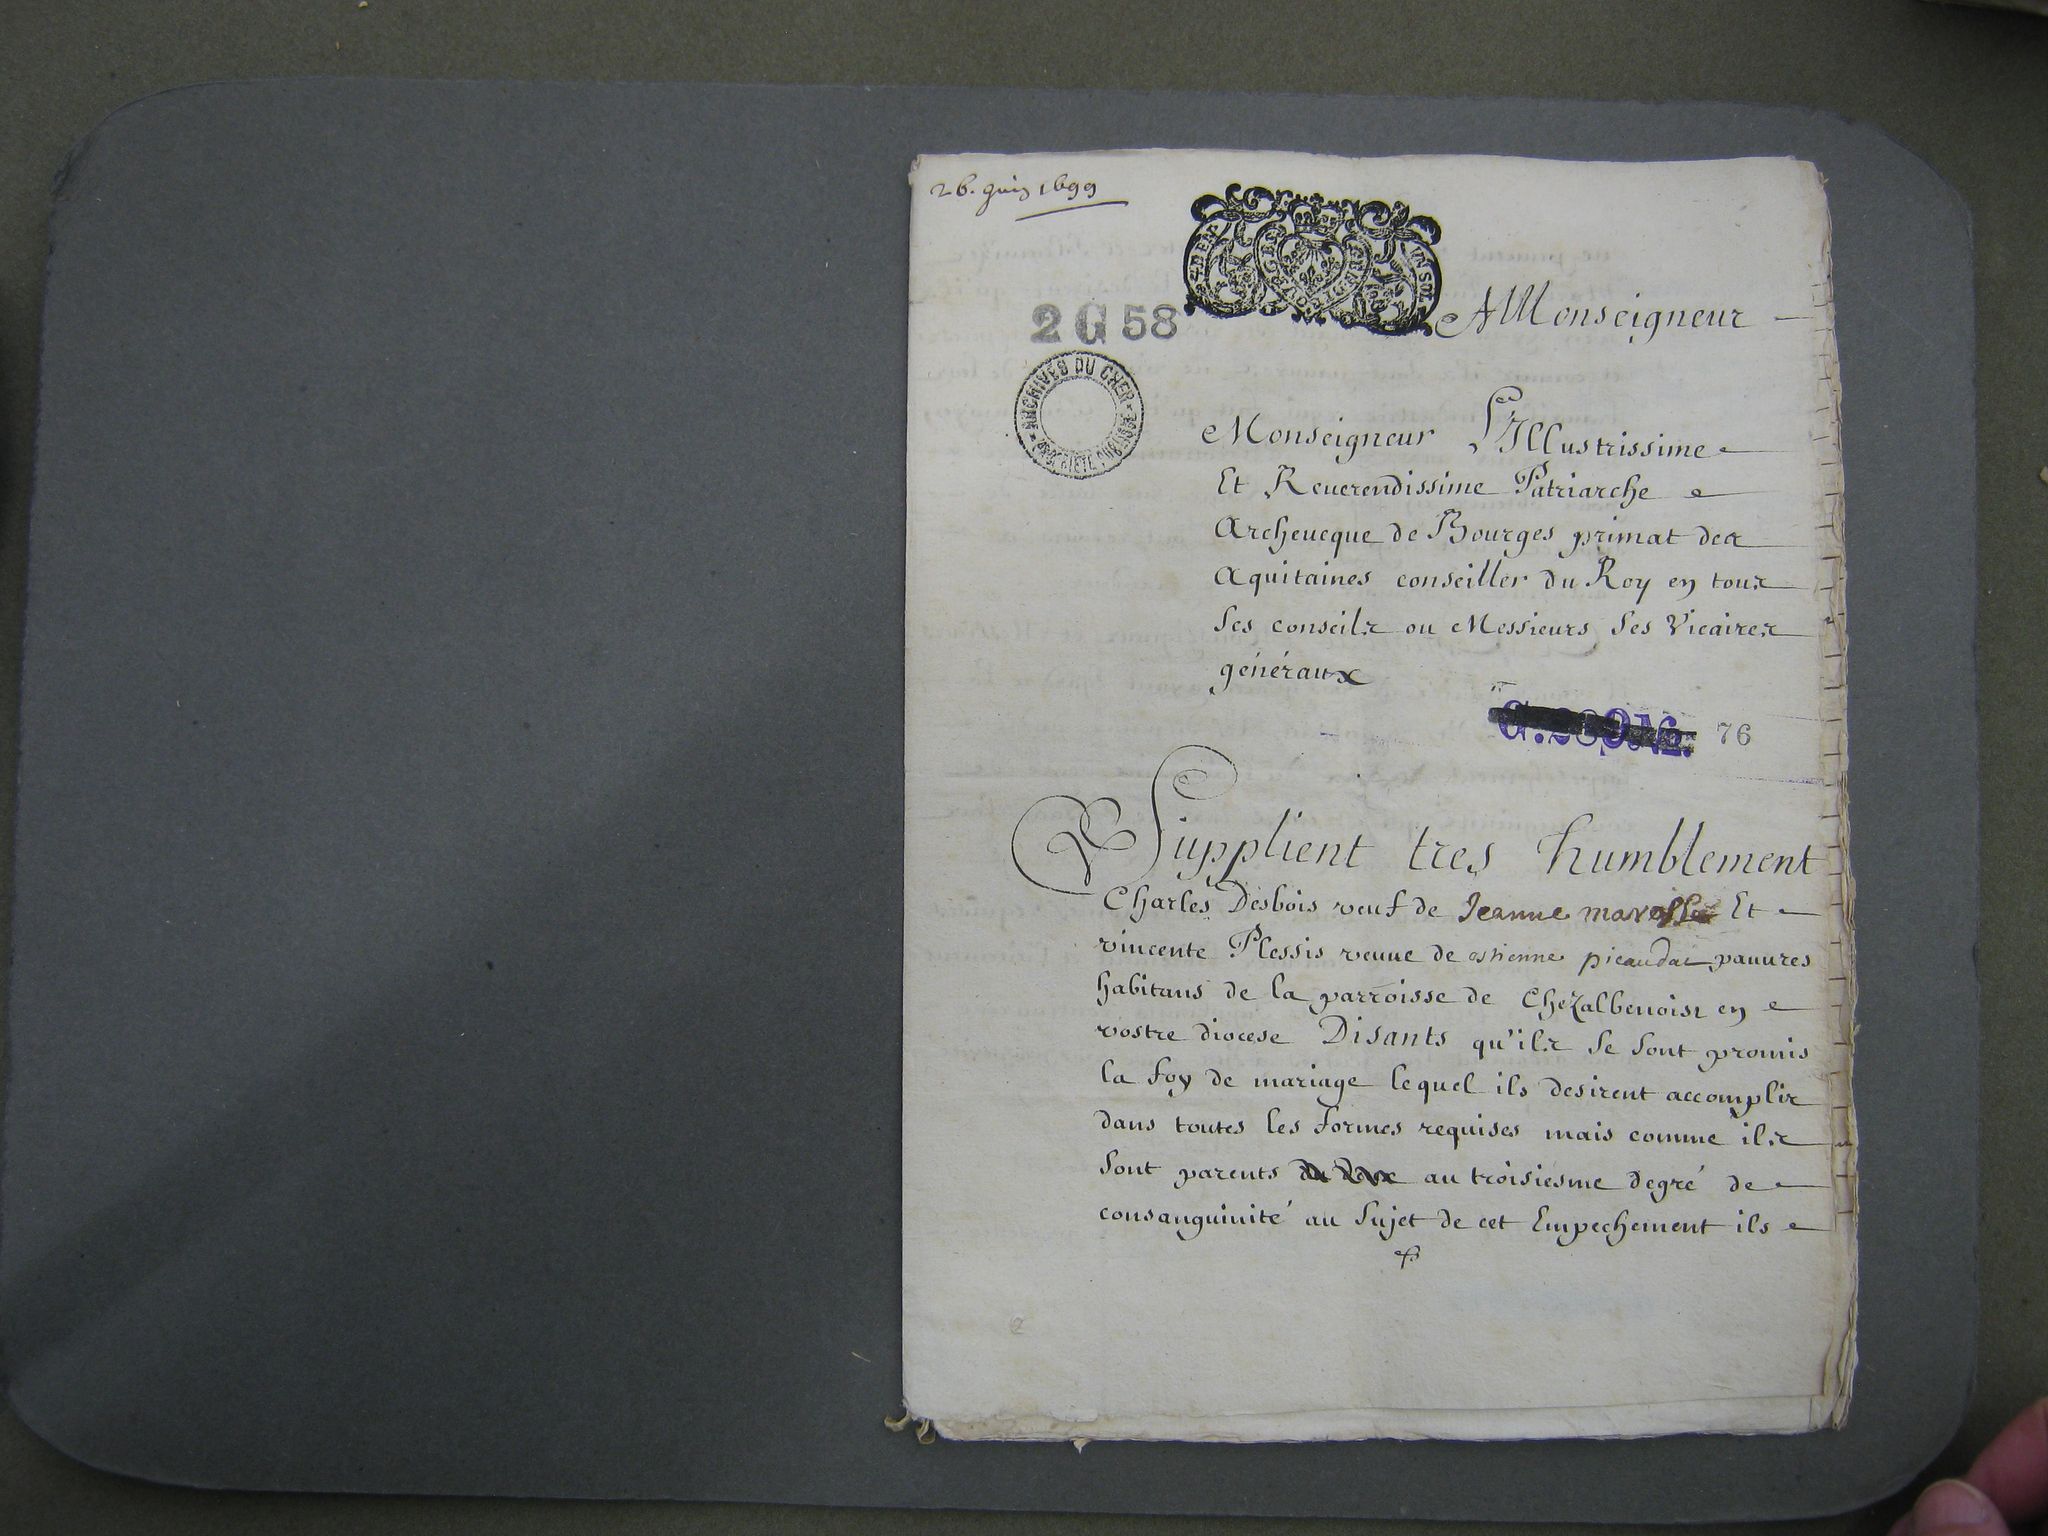 26. juin 1699
GNLT DE BOURGES
UN SOL
2 G 58
A Monseigneur
ARCHIVES DU CHER
PROPRIÉTÉ PUBLIQUE
Monseigneur L'Illustrissime
Et Reuerendissime Patriarche
Archeueque de Bourges primat des
Aquitaines conseiller du Roy en tous
Ses conseils ou Messieurs Ses Vicaires
généraux
76
Supplient tres humblement
Charles Desbois veuf de Jeanne Et
vincente Plessis veuue de estienne picaudat pauures
habitans de la parroisse de Chezalbenoist en
vostre diocese Disants qu'ils Se Sont promis
la foy de mariage lequel ils desirent accomplir
dans toutes les formes requises mais comme ils
Sont parents au troisiesme degré de
consanguinité au Sujet de cet Empechement ils